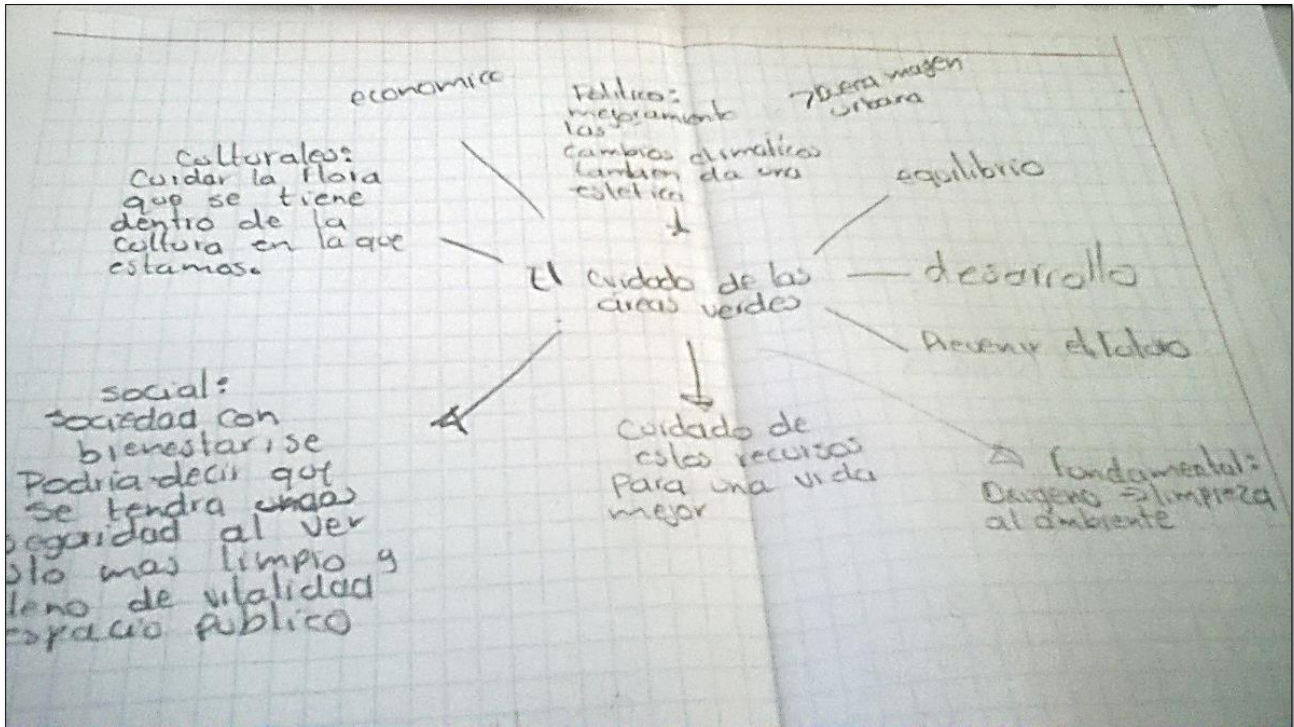 economico
Politico:
mejoramiento
las
cambios climaticos
tambien da una
estetica
urbana
Culturales:
Cuidar la flora
que se tiene
dentro de la
cultura en la que
estamos.
equilibrio
El cuidado de las
áreas verdes
desarrollo
Prevenir el
social:
sociedad con
bienestar, se
Podria decir que
se tendra
al ver
mas limpio y
de vitalidad
publico
Cuidado de
estos recursos
Para una vida
mejor
fundamental:
Oxigeno ⇒ limpieza
al ambiente